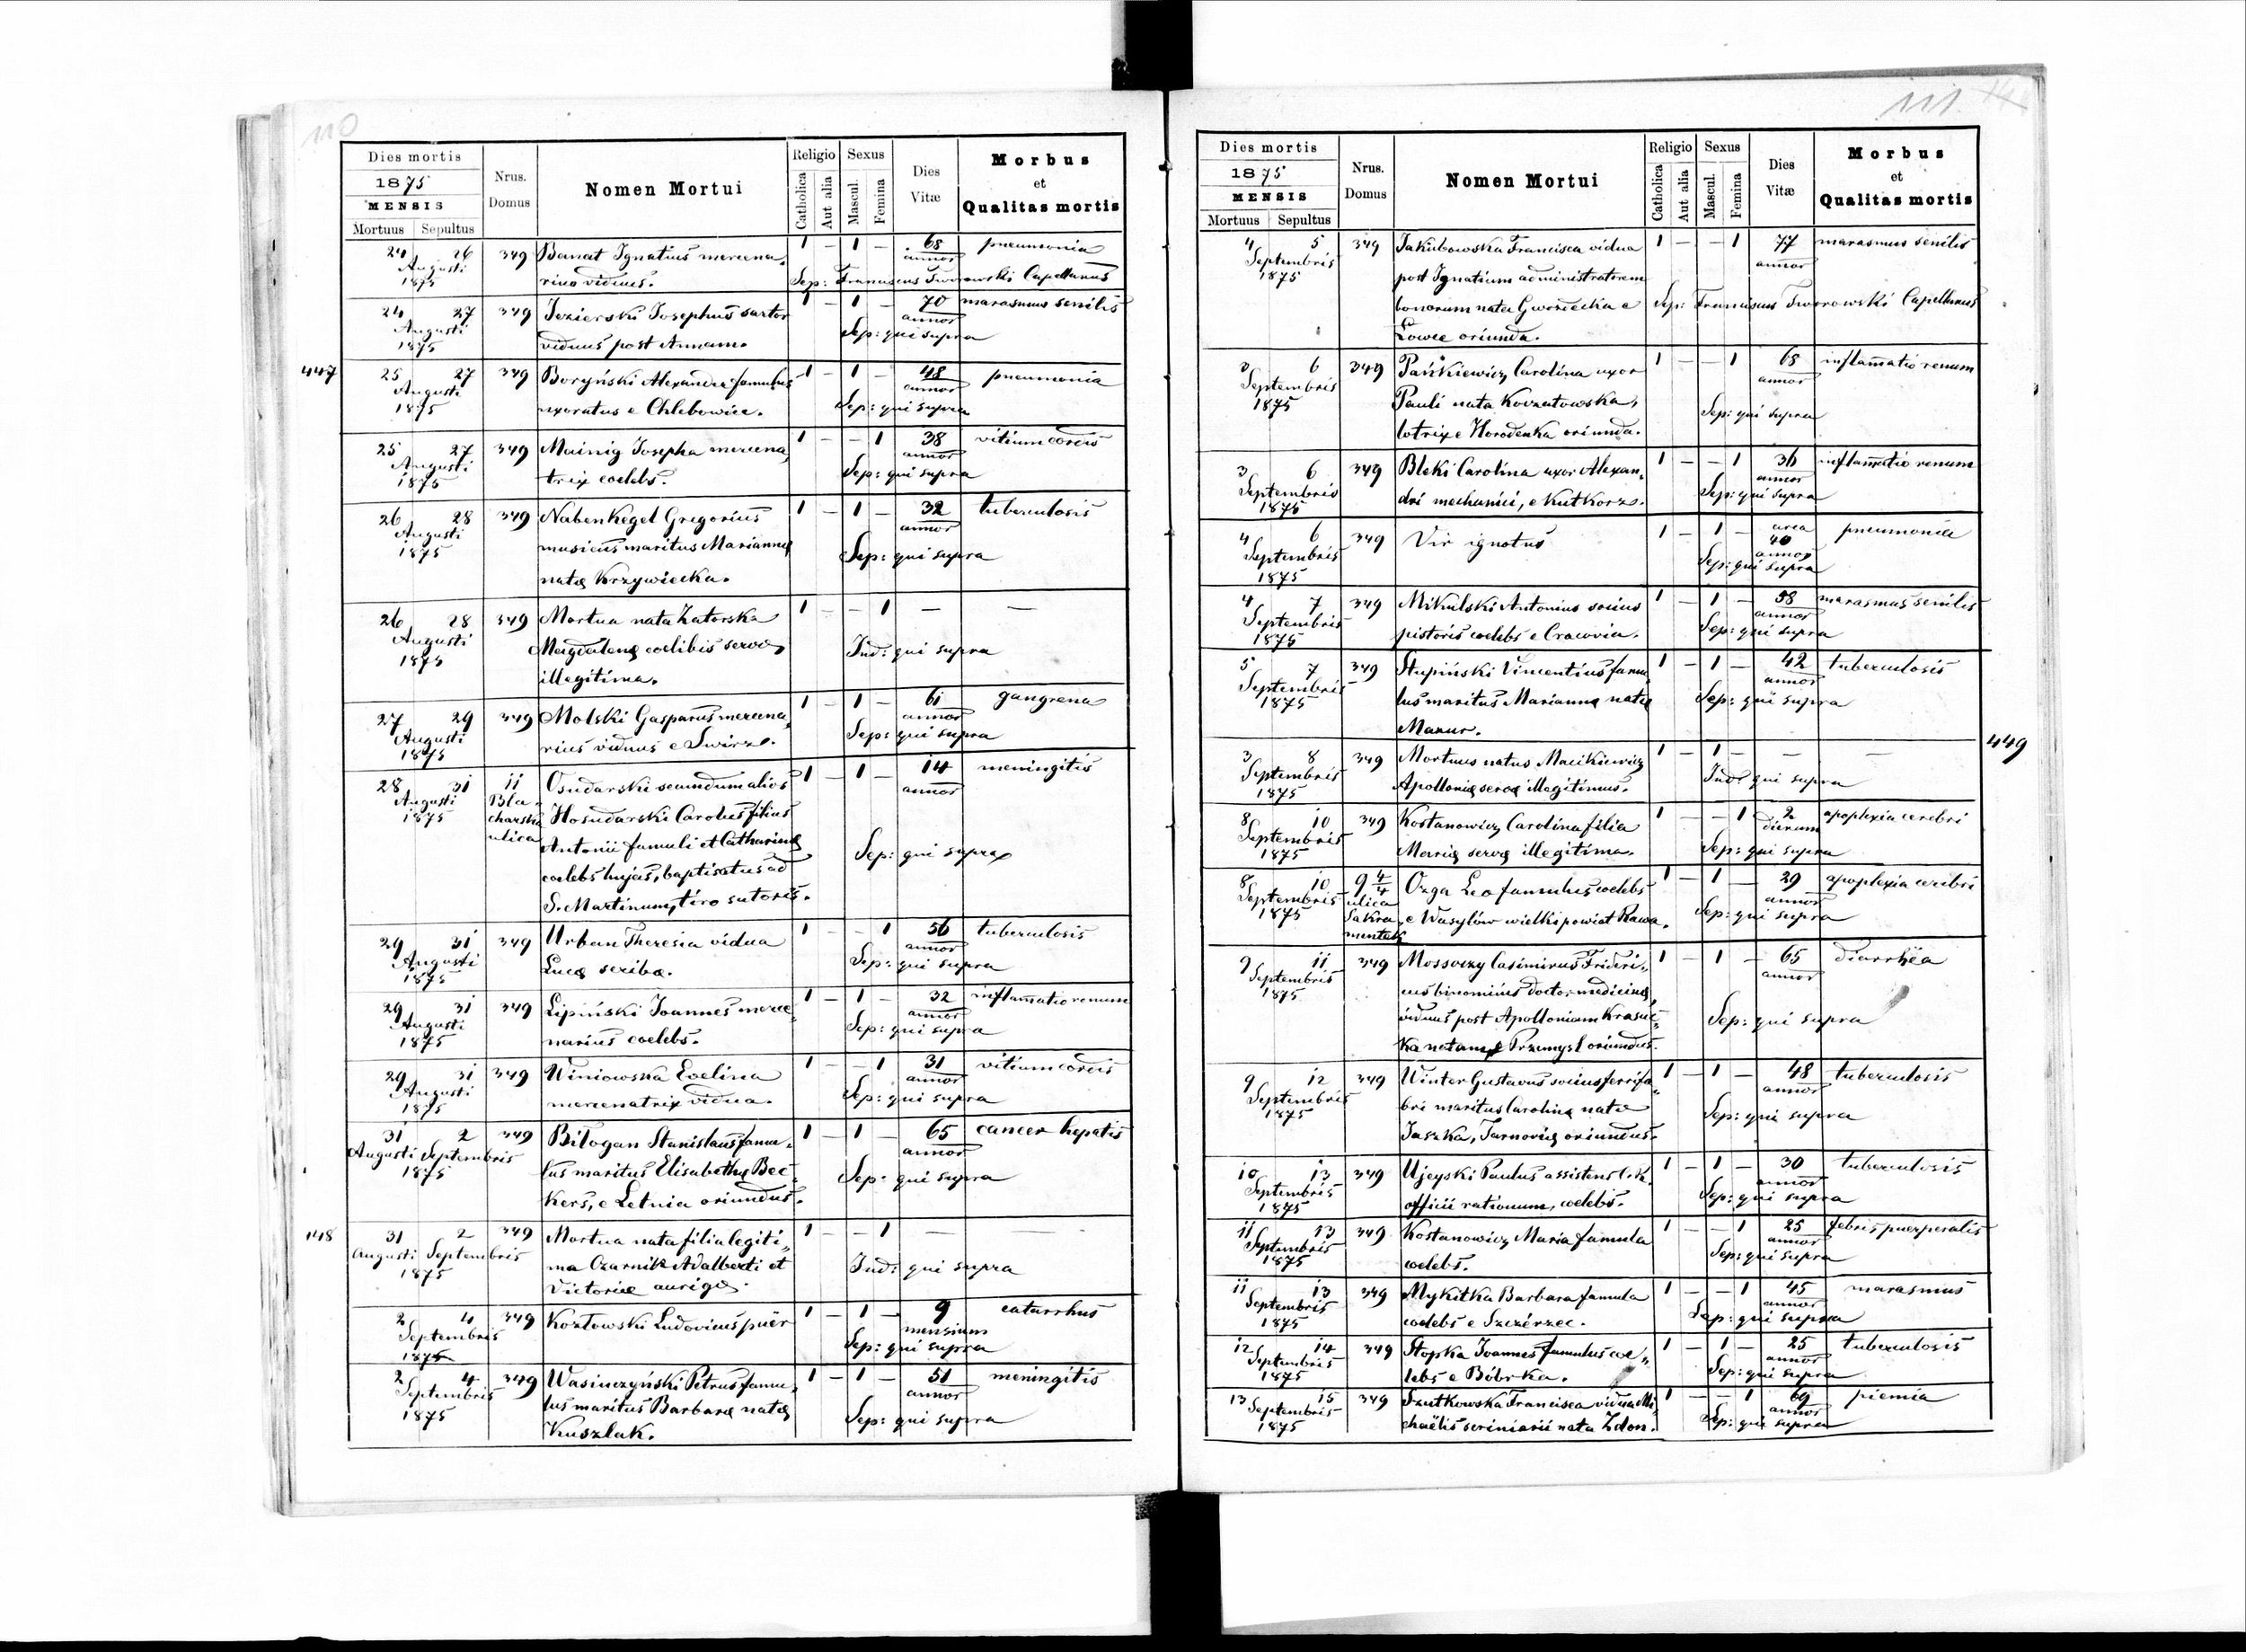 110
Dies mortis
1875
MENSIS
Mortuus Sepultus
Nrus. Domus
Nomen Mortui
Religio
Catholica
Aut alia
Sexus
Mascul.
Femina
Dies Vitæ
Morbus et Qualitas mortis
24 26 349 Banat Ignatius mercena„ 1 – 1 – 68 pneumonia
Augusti annor
1875 rius viduus. Sep: Franciscus Tworowski Capellanus
24 27 349 Jezierski Josephus sartor 1 – 1 – 70 marasmus senilis
Augusti annor
1875 viduus post Annam. Sep: qui supra
447
25 27 349 Boryński Alexander famulus 1 – 1 – 48 pneumonia
Augusti annor
1875 uxoratus e Chlebowice. Sep: qui supra
25 27 349 Mainig Josepha mercena„ 1 – – 1 38 vitium cordis
Augusti annor
1875 trix coelebs. Sep: qui supra
26 28 349 Nabenkegel Gregorius 1 – 1 – 32 tuberculosis
Augusti annor
1875 musicus maritus Mariannę Sep: qui supra
natę Krzywiecka.
26 28 349 Mortua nata Zatorska 1 – – 1 — —
Augusti Magdalenę coelibis servę Ind: qui supra
1875 illegitima.
27 29 349 Molski Gasparus mercena„ 1 – 1 – 61 gangrena
Augusti annor
1875 rius viduus e Swirz. Sep: qui supra
28 31 11 Osudarski secundum alios 1 – 1 – 14 meningitis
Augusti Bla- annor
1875 charska Hosudarski Carolus filius
ulica Antonii famuli et Catharinę Sep: qui supra
coelebs hujas, baptisatus ad
S. Martinum, tiro sutoris.
29 31 349 Urban Theresia vidua 1 – – 1 56 tuberculosis
Augusti annor
1875 Lucę scribæ. Sep: qui supra
29 31 349 Lipiński Joannes merce„ 1 – 1 – 32 inflamatio renum
Augusti annor
1875 narius coelebs. Sep: qui supra
29 31 349 Winiowska Evelina 1 – – 1 31 vitium cordis
Augusti annor
1875 mercenatrix vidua. Sep: qui supra
31 2 349 Biłogan Stanislaus famu„ 1 – 1 – 65 cancer hepatis
Augusti Septembris annor
1875 lus maritus Elisabethę Bec„ Sep: qui supra
kers, e Letnia oriundus.
148
31 2 349 Mortua nata filia legiti„ 1 – – 1 — —
Augusti Septembris ma Czarnik Adalberti et Ind: qui supra
1875 Victoriæ aurigæ.
2 4 349 Kozłowski Ludovicus puer 1 – 1 – 9 catarrhus
Septembris mensium
1875 Sep: qui supra
2 4 349 Wasinczyński Petrus famu„ 1 – 1 – 51 meningitis
Septembris annor
1875 lus maritus Barbarę natę Sep: qui supra
Kuszlak.
111.
Dies mortis
1875
MENSIS
Mortuus Sepultus
Nrus. Domus
Nomen Mortui
Religio
Catholica
Aut alia
Sexus
Mascul.
Femina
Dies Vitæ
Morbus et Qualitas mortis
4 5 349 Jakubowska Francisca vidua 1 – – 1 77 marasmus senilis
Septembris annor
1875 post Ignatium administratorem
bonorum nata Gwozdecka e Sep: Franciscus Tworowski Capellanus
Łowce oriunda.
3 6 349 Pańkiewicz Carolina uxor 1 – – 1 68 inflamatio renum
Septembris annor
1875 Pauli nata Kovzatowska, Sep: qui supra
lotrix e Horodenka oriunda.
3 6 349 Bleki Carolina uxor Alexan„ 1 – – 1 36 inflamatio renum
Septembris annor
1875 dri mechanici, e Kutkorz. Sep: qui supra
4 6 349 Vir ignotus 1 – 1 – circa 40 pneumonia
Septembris annor
1875 Sep: qui supra
4 7 349 Mikulski Antonius socius 1 – 1 – 58 marasmus senilis
Septembris annor
1875 pistoris coelebs e Cracovia. Sep: qui supra
5 7 349 Stupiński Vincentius famu„ 1 – 1 – 42 tuberculosis
Septembris annor
1875 lus maritus Mariannę natę Sep: qui supra
Mazur.
449
3 8 349 Mortuus natus Macikiewicz 1 – 1 – — —
Septembris Ind: qui supra
1875 Apollonię servę illegitimus.
8 10 349 Kostanowicz Carolina filia 1 – – 1 2 apoplexia cerebri
Septembris dierum
1875 Marię servę illegitima. Sep: qui supra
8 10 9 4/4 Ozga Leo famulus coelebs 1 – 1 — 29 apoplexia ceribri
Septembris ulica annor
1875 Sakra„ e Wasylów wielki powiat Rawa. Sep: qui supra
mentek
9 11 349 Mossoczy Casimirus Frideri„ 1 – 1 – 65 diarrhëa
Septembris annor
1875 cus binominis doctor medicinę,
viduus post Apolloniam Krasuc„ Sep: qui supra
ka natam, e Przemysl oriundus.
9 12 349 Winter Gustavus socius ferrifa„ 1 – 1 – 48 tuberculosis
Septembris annor
1875 bri maritus Carolinę natæ Sep: qui supra
Jaszka, Tarnovię oriundus.
10 13 349 Ujeyski Paulus assistens C. K. 1 – 1 – 30 tuberculosis
Septembris annor
1875 officii rationum, coelebs. Sep: qui supra
11 13 349 Kostanowicz Maria famula 1 – – 1 25 febris puerperalis
Septembris annor
1875 coelebs. Sep: qui supra
11 13 349 Mykitka Barbara famula 1 – – 1 45 marasmus
Septembris annor
1875 coelebs e Szczérzec. Sep: qui supra
12 14 349 Stopka Joannes famulus coe„ 1 – 1 – 25 tuberculosis
Septembris annor
1875 lebs e Bóbrka. Sep: qui supra
13 15 349 Szutkowska Francisca vidua Mi„ 1 – – 1 69 piemia
Septembris annor
1875 chaëlis scriniarii nata Zdon. Sep: qui supra